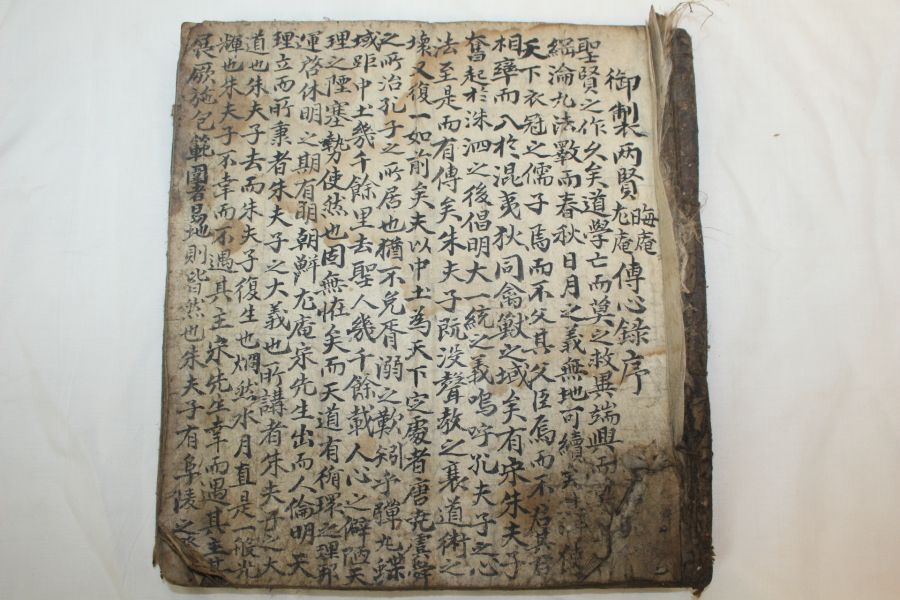 御制兩賢晦庵尤庵傳心錄序
聖賢之作久矣道學亡而莫之救異端興而
綱淪九法斁而春秋日月之義無地可續
天下衣冠之儒子焉而不父其父臣焉而不君其君
相率而入於混夷狄同禽獸之域矣有宋朱夫子
奮起於洙泗之後倡明大一統之義嗚呼孔夫子之心
法至是而有傳矣朱夫子旣没聲敎之衰道術之
壞又復一如前矣夫以中土為天下定處者唐堯虞舜
之所治孔子之所居也猶不免胥溺之歎矧乎彈丸蝶
域距中土幾千餘里去聖人幾千餘載人心之僻陋天
理之堙塞勢使然也固無恠矣而天道有循環之理邦
運啓休明之期有明朝鮮尤庵宋先生出而人倫明天
理立而所秉者朱夫子之大義也所講者朱夫子之大
道也朱夫子去而朱夫子復生也烱然水月直是一般光
輝也朱夫子不幸而不遇其主宋先生幸而遇其主其
展厥施包範圍者易地則皆然也朱夫子有阜陵之